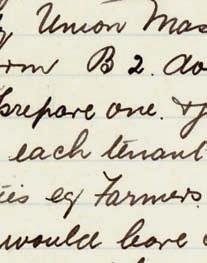 Union Mas
orm B 2. do
prepare one. &
each tenant
ties eg Farmers.
would leave